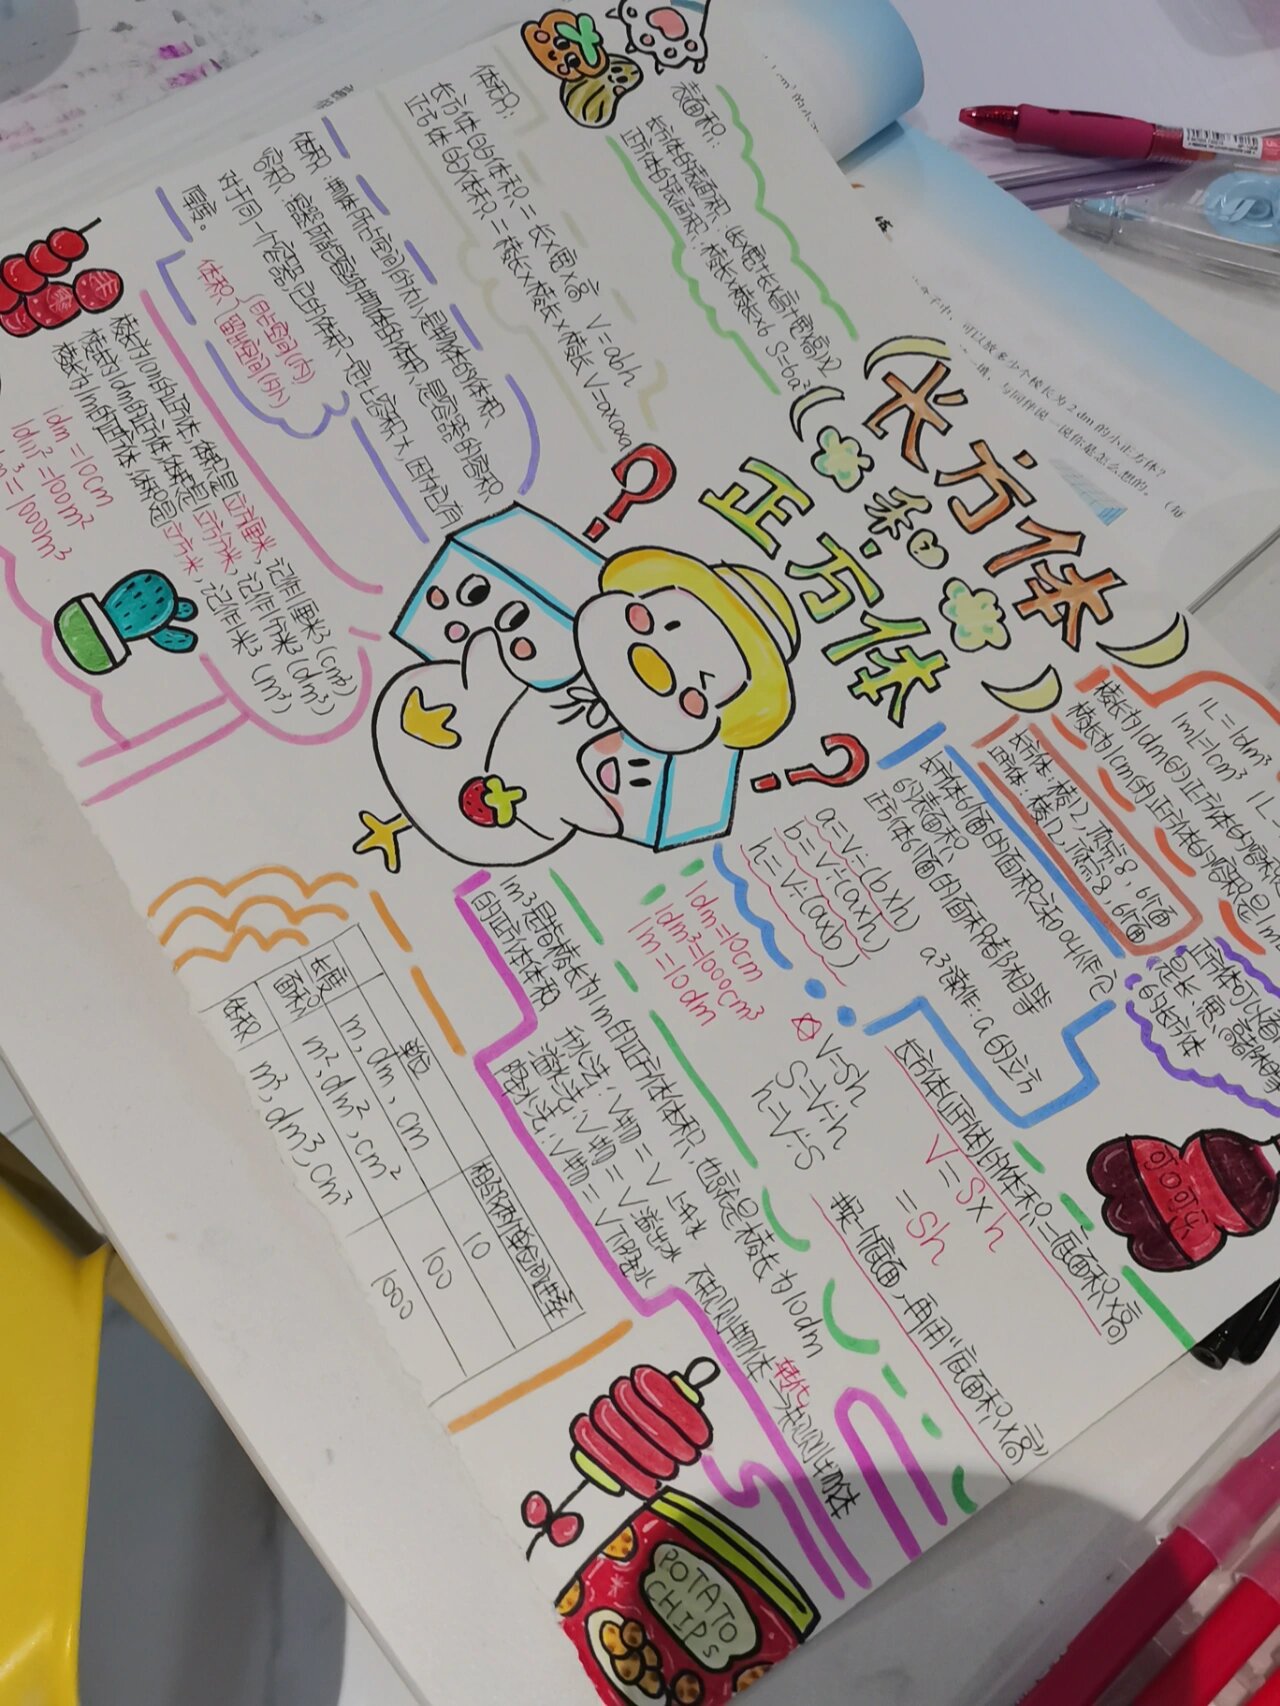 长方体
和
正方体
表面积:
长方体的表面积:(长x宽+长x高+宽x高)x2
正方体的表面积:棱长x棱长x6 S=6a²
体积:
长方体的体积=长x宽x高 V=abh
正方体的体积=棱长x棱长x棱长 V=axaxa
体积:物体所占空间的大小是物体的体积、
容积:容器所能容纳物体的体积、是容器的容积、
对于同一个容器,它的体积一定比容积大,因为它有
厚度。
体积
自占空间(内)
留出空间(外)
棱长为1cm的正方体,体积是1立方厘米,记作1厘米3(cm³)
棱长为1dm的正方体,体积是1立方分米,记作1分米3(dm³)
棱长为1m的正方体,体积是1立方米,记作1米3(m³)
1dm=10cm
1dm²=100m²
m³=1000m³
1L=1dm³
1mL=1cm³
1L=
棱长为1dm的正方体的容积是1
棱长为1cm的正方体的容积是1m
长方体:棱12,顶点8,6个面
正方体:棱12,顶点8,6个面
正方体可以看
是长、宽、高都相等
的长方体
长方体6个面的面积之和叫作它
的表面积、
正方体6个面的面积都相等
a3读作:a的立方
a=V÷(bxh)
b=V÷(axh)
h=V÷(axb)
V=Sh
S=V÷h
h=V÷S
长方体(正方体)的体积=底面积x高
V=Sxh
=Sh
找一个底面,再用"底面积x高"
1dm=10cm
1dm³=1000cm³
1m=10dm
1m3是指棱长为1m的正方体体积,也就是棱长为10dm
的正方体体积
升水法:V物=V上升水
溢水法:V物=V溢出水
降水法:V物=V下降水
不规则物体 转化 规则物体
单位 相邻两单位间进率
长度 m,dm,cm 10
面积 m²,dm²,cm² 100
体积 m³,dm³,cm³ 1000
可口可乐
POTATO
CHIPS
盒子中,可以放多少个棱长为 2 dm 的小正方体?
填,与同伴说一说你是怎么想的。